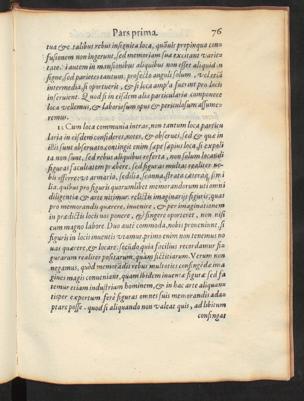 Pars prima. 76
tua & c. talibus rebus insignita loca, quàuis propinqua con
fusionem non ingerunt, sed memoriam sua excitant varie
tate. in autem in mansionibus aliquibus non esset aliquid in
signe, sed parietes tantum, profectò anguli solum, vel etiā
intermedia, si oportuerit, & si loca ampla fuerint pro locis
inseruient. Quod si in eisdem alia particularia componere
loca vellemus, & laboriosum opus & periculosum assume-
remus.
Cum loca communia intras, non tantum loca particu
laria in eisdem consideres, notes, & obserues, sed & quæ in
illis sunt obseruato. contingit enim sæpe sapius loca, si expoli
ta non sunt, sed rebus aliquibus referta, non solum locandi
figuras facultatem præbere, sed figuras multas realiter no-
bis offerre: vt armaria, sedilia, scamna, strata cæteraq; simi
lia. quibus pro figuris quorumlibet memorandorum uti omni
diligentia & arte nitimur. relictis imaginarijs figuris, quas
pro memorandis quærere, inuenire, & per imaginationem
in prædictis locis nos ponere, & fingere oporteret, non nisi
cum magno labore. Duo aūt commoda, nobis proueniunt, si
figuris in locis inuentis vtamur. primo enim non tenemus no
uas quærere, & locare: secūdo quia facilius recordamur fi-
gurarum realiter positarum, quàm fictitiarum. Verum non
negamus, quòd memorādis rebus multoties confingēdæ ima
gines magis conueniant, quàm ibidem inuentæ figuræ: sed fa
temur etiam industrium hominem, & in hac arte aliquan-
tisper expertum ferè figuras omnes suis memorandis adap
tare posse. quod si aliquando non valeat quis, ad libitum
confingat